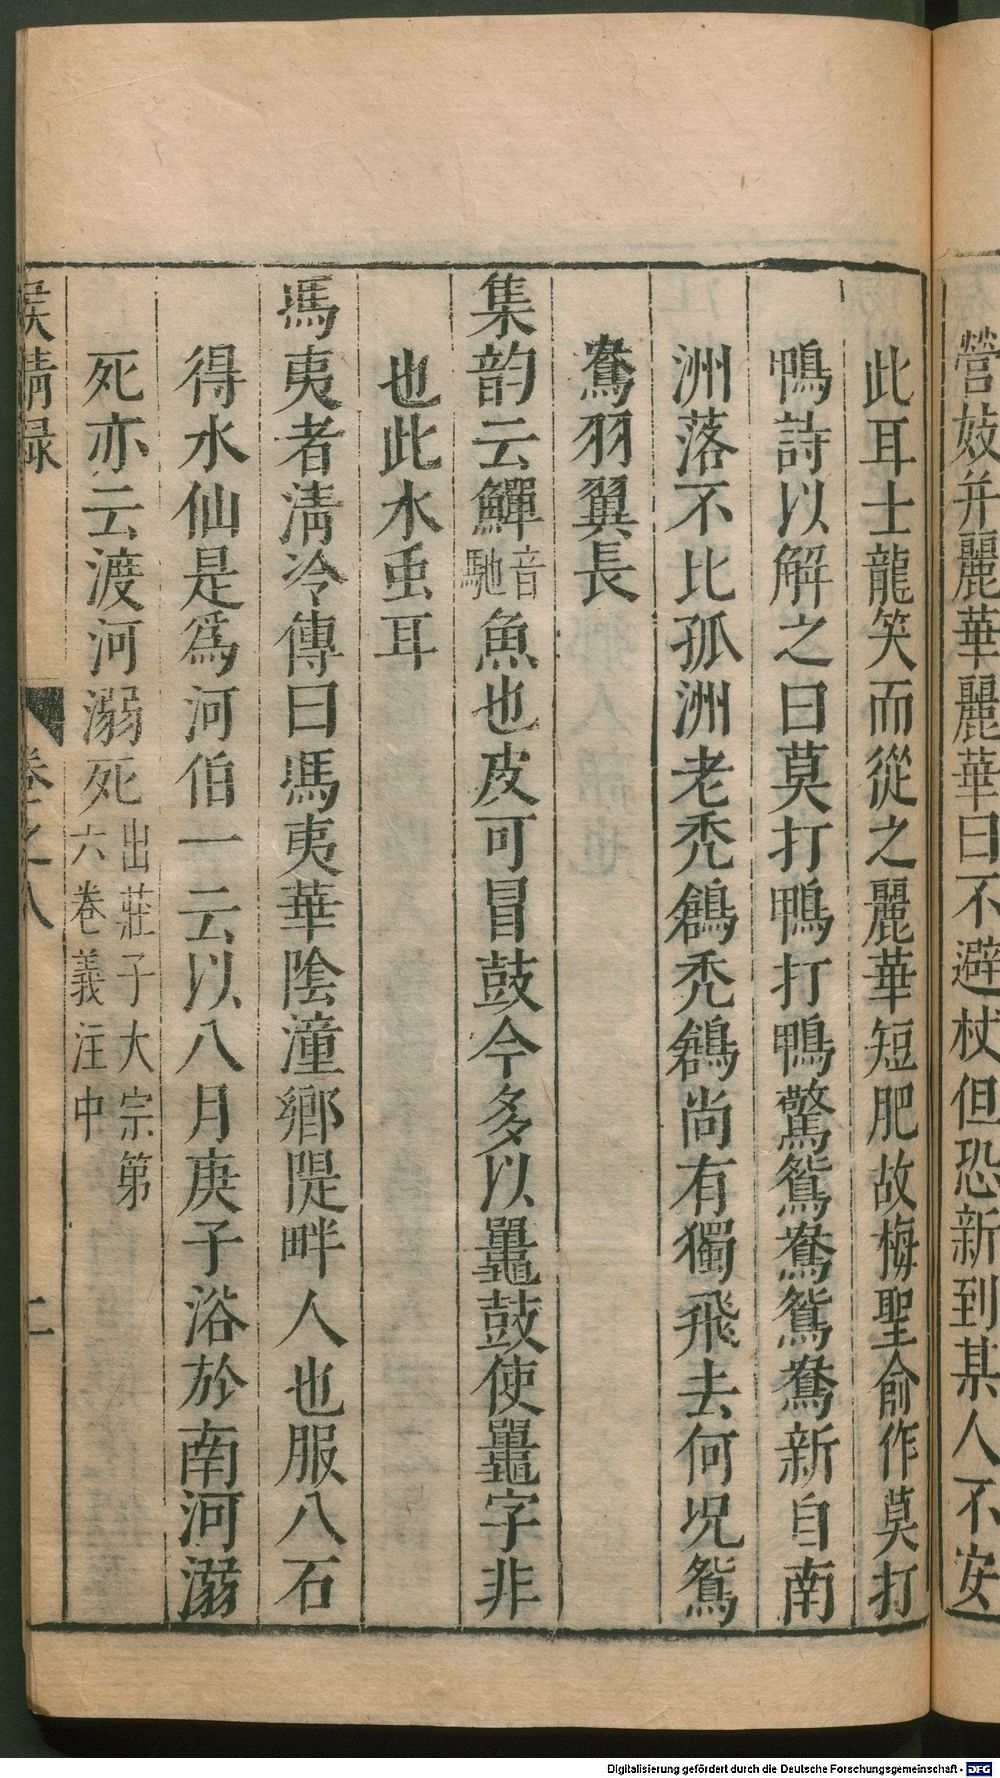 營妓并麗華麗華曰不避杖但恐新到某人不安
此耳士龍笑而從之麗華短肥故梅聖俞作莫打
鴨詩以解之曰莫打鴨打鴨驚鴛鴦鴛鴦新自南
洲落不比孤洲老禿鶬禿鶬尚有獨飛去何況鴛
鴦羽翼長
集韵云鱓音馳魚也皮可冒鼓今多以鼉鼓使鼉字非
也此水䖝耳
馮夷者淸泠傳曰馮夷華陰潼鄉隄畔人也服八石
得水仙是爲河伯一云以八月庚子浴於南河溺
死亦云渡河溺死出莊子大宗第六卷義注中
侯鯖録
卷之八
二
Digitalisierung gefördert durch die Deutsche Forschungsgemeinschaft - DFG